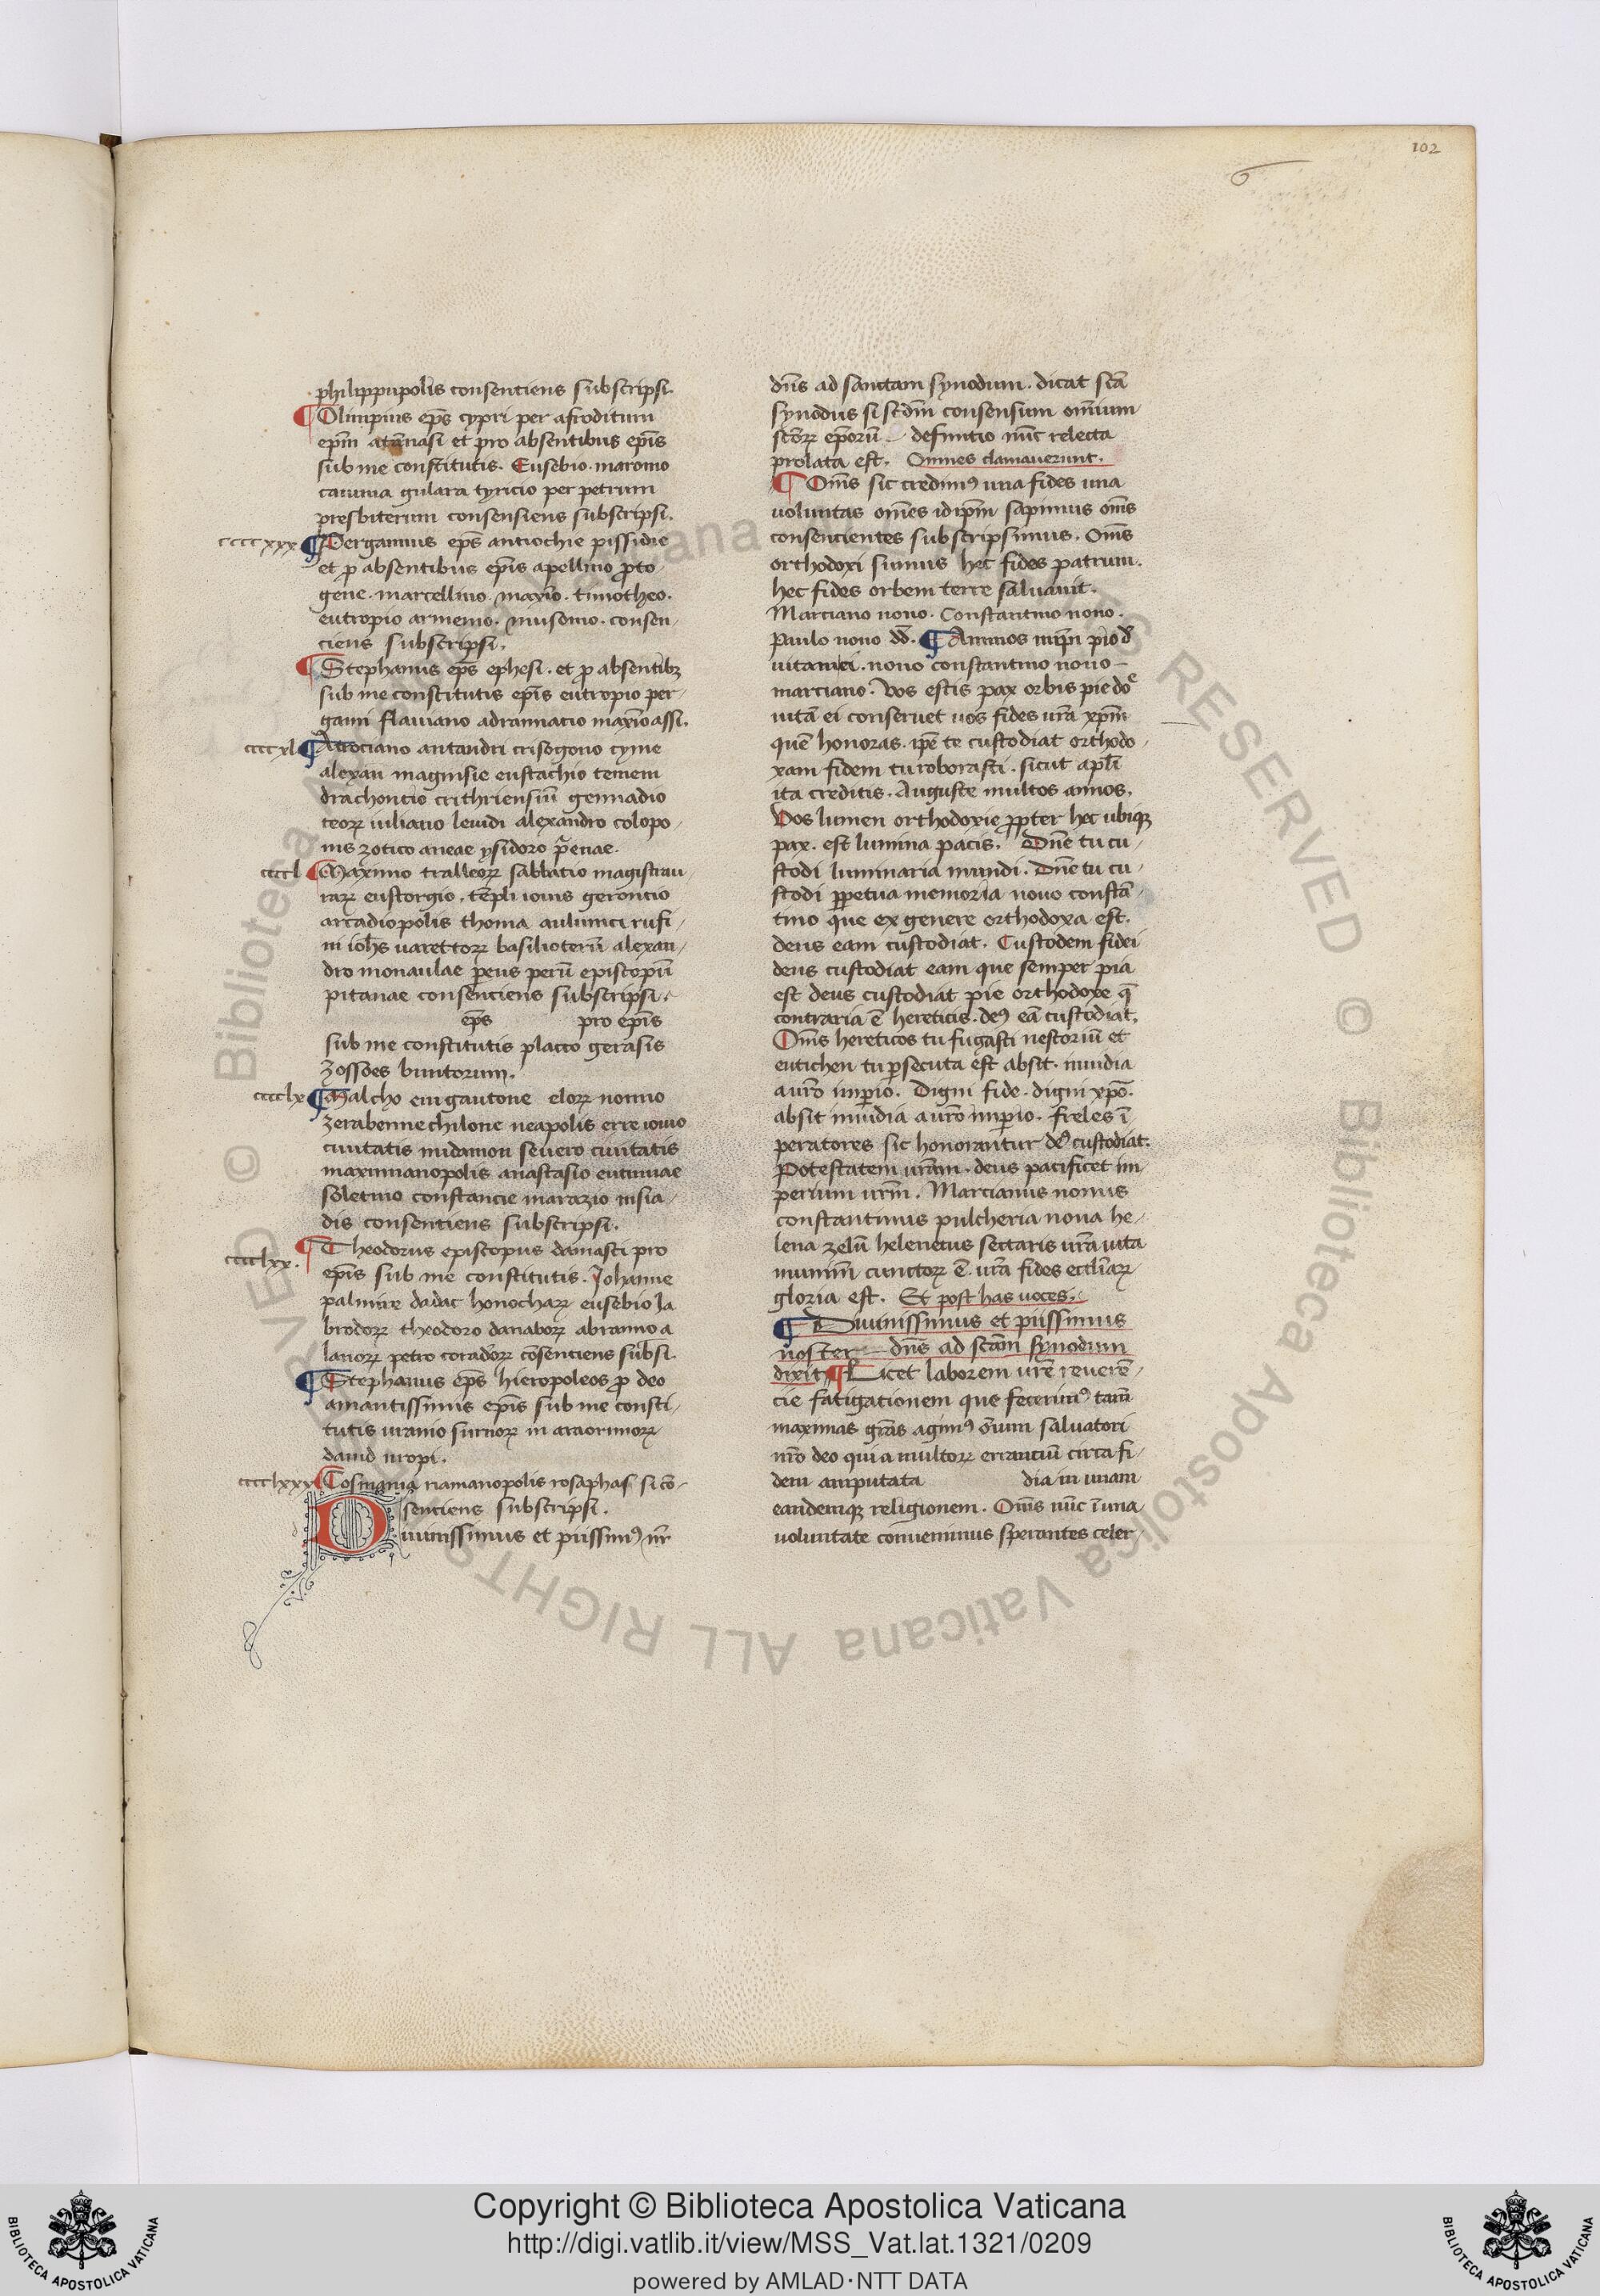 102
philippupolis consentiens subscripsi.
¶ Olimpius ep̄s cypri per afroditum
ep̄m atānasi et pro absentibus ep̄is
sub me constitutis. Eusebio. maromo
caiuma gulara tyricio per petrum
presbiterum consensiens subscripsi.
ccccxxx ¶ Pergamius ep̄s antiochie pissidie
et ꝓ absentibus ep̄is apellino ꝓto
gene. marcellino. maxīo. timotheo.
eutropio armenio. musonio. consen
ciens subscripsi.
¶ Stephanus ep̄s ephesi. et ꝓ absentibꝫ
sub me constitutis ep̄is eutropio per
gami flauiano adramiatio maxīo assi.
ccccxl ¶ Atrociano antandri crisogono cyme
alexan̄ magnisie eustachio temem
drachontio crithriensiū gennadio
teoꝝ iuliano leuidi alexandro colopo
nis zotico aneae ysidoro p̄enae.
ccccl ¶ Maximo tralleoꝝ sabbatio magistrau
raꝝ eustorgio. templi iouis gerontio
arcadiopolis thoma aulumci rufi
ni ioh̄s uarettoꝝ basilioterū alexan
dro monaulae ꝑeus perū episcopū
pitanae consenciens subscripsi.
ep̄s pro ep̄is
sub me constitutis placco gerasis
zossoes buntorum.
cccclx ¶ Malcho emgautone eloꝝ nonno
zerabenne chilone neapolis erre iouio
ciuitatis midamon seuero ciuitatis
maximianopolis anastasio eutimiae
soletino constancie marazio insia
dis consentiens subscripsi.
cccclxx. ¶ Theodorus episcopus damasci pro
ep̄is sub me constitutis. Johanne
palmire dadac honochaꝝ eusebio Ja
brodoꝝ theodoro danaboꝝ abramo a
lanoꝝ petro coradoꝝ cōsenciens subsi.
¶ Stephanus ep̄s hieropoleos ꝓ deo
amantissimis ep̄is sub me consti
tutis uranio surnoꝝ in araorimoꝝ
dauid uropi.
cccclxxx ¶ Cosmania namanopolis rosaphas si cō
senciens subscripsi.
Diuinissimus et piissimꝰ nr̄
dn̄s ad sanctam synodum. dicat sc̄a
synodus si scd̄m consensum omnium
sc̄oꝝ ep̄orū defimtio nūc relecta
prolata est. Omnes clamauerunt.
¶ Om̄s sic credimꝰ una fides una
uoluntas om̄es idip̄m sapimus om̄s
consentientes subscripsimus. Om̄s
orthodoxi sumus hec fides patrum.
hec fides orbem terre saluauit.
Marciano nouo. Constantino nouo.
Paulo nouo dd̄. ¶ Annos mīpn pio d̄
uitam ei. nouo constantino nouo
marciano. Vos estis pax orbis pie do
uitā ei conseruet uos fides ur̄a xp̄m
quē honoras. ip̄e te custodiat orthodo
xam fidem tu roborasti. sicut apl̄i
ita creditis. Auguste multos annos.
Vos lumen orthodoxie ꝓpter hec ubiqꝫ
pax. est lumina pacis. Dn̄e tu cu
stodi luminaria mundi. Dn̄e tu cu
stodi ꝑpetua memoria nouo constā
tino que ex genere orthodoxa est.
deus eam custodiat. Custodem fidei
deus custodiat eam que semper pia
est deus custodiat pie orthodoxe q̄
contraria ē hereticis. deꝰ eā custodiat.
Om̄s hereticos tu fugasti nestoriū et
eutichen tu ꝑsecuta est absit. inuidia
a ur̄o imꝑio. Digni fide. digni xp̄o.
absit inuidia a ur̄o imꝑio. fideles ī
peratores sic honorantur deꝰ custodiat.
Potestatem ur̄am. deus pacificet im
perium ur̄m. Marcianus nouus
constantinus pulcheria noua he
lena zelū helenetus sectaris ur̄a uita
munim̄ cunctoꝝ ē. ur̄a fides eccl̄iaꝝ
gloria est. Et post has uoces.
¶ Diuinissimus et piissimus
noster dn̄s ad sc̄am synodum
dixit ¶ Licet laborem ur̄e reuerē
cie fatigationem qus fecerimꝰ tam̄
maximas gr̄as agimꝰ om̄ium saluatori
nr̄o deo qui a multoꝝ erranciū circa fi
dem amputata dia in unam
eandemqꝫ religionem. Om̄s nūc ī una
uoluntate conuenimus sperantes celer
Copyright © Biblioteca Apostolica Vaticana
http://digi.vatlib.it/view/MSS_Vat.lat.1321/0209
powered by AMLAD·NTT DATA